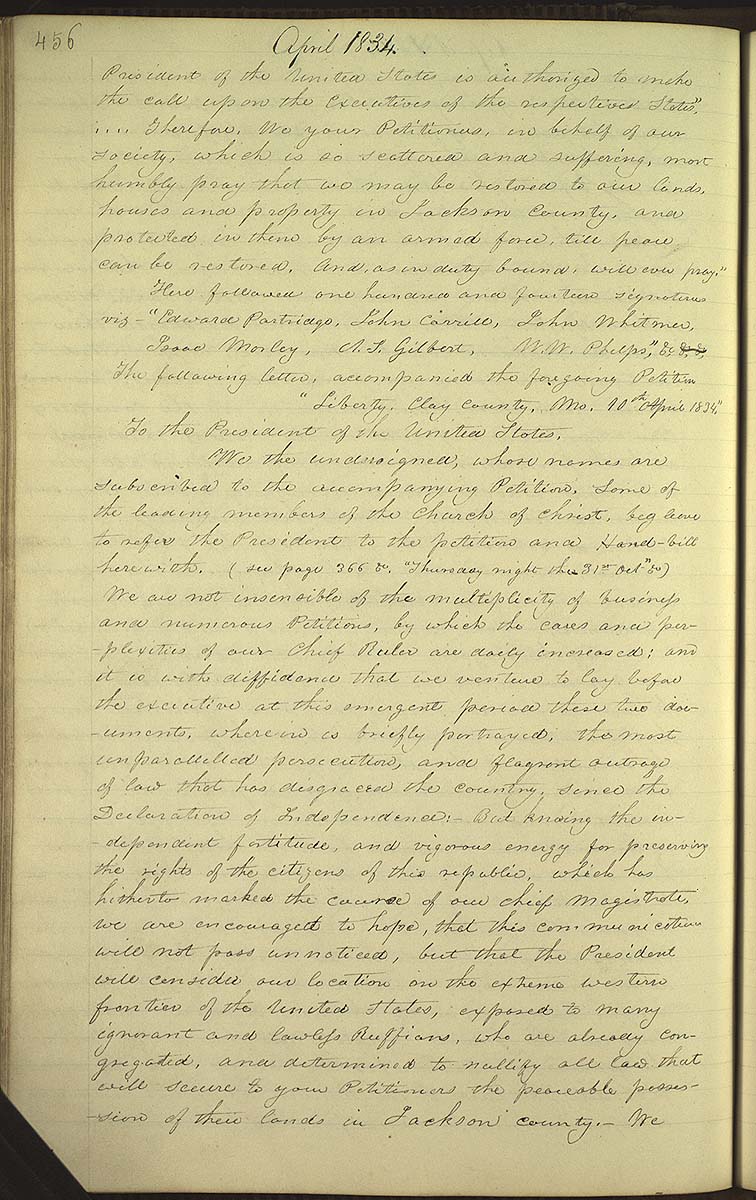 456
April 1834.
President of the United States is authorized to make
the call upon the Executives of the respective States",
:... Therefore, We your Petitioners, in behalf of our
society, which is so scattered and suffering, most
humbly pray that we may be restored to our lands,
houses and property in Jackson County, and
protected in them by an armed force, till peace
can be restored. And, as in duty bound, will ever pray."
Here followed one hundred and fourteen signatures
viz- "Edward Partridge, John Corrill, John Whitmer,
Isaac Morley, A. S. Gilbert, W. W. Phelps," &c
The following letter, accompanied the foregoing Petition
"Liberty, Clay County, Mo. 10th April 1834."
To the President of the United States,
We the undersigned, whose names are
subscribed to the accompanying Petition, some of
the leading members of the Church of Christ, beg leave
to refer the President to the petition and Hand-bill
herewith. (see page 366 &c. "Thursday night the 31st Oct" &c)
We are not insensible of the multiplicity of business
and numerous Petitions, by which the cares and per-
-plexities of our Chief Ruler are daily increased; and
it is with diffidence that we venture to lay before
the executive at this emergent period these two doc-
-uments, wherein is briefly portrayed; the most
unparallelled persecution, and flagrant outrage
of law that has disgraced the country, since the
Declaration of Independence:- But knowing the in-
-dependent fortitude, and vigorous energy for preserving
the rights of the citizens of this republic, which has
hitherto marked the course of our chief magistrate,
we are encouraged to hope, that this communication
will not pass unnoticed, but that the President
will consider our location on the extreme western
frontier of the United States, exposed to many
ignorant and lawless Ruffians, who are already con-
gregated, and determined to nullify all law that
will secure to your Petitioners the peaceable posses-
-sion of their lands in Jackson county.- We